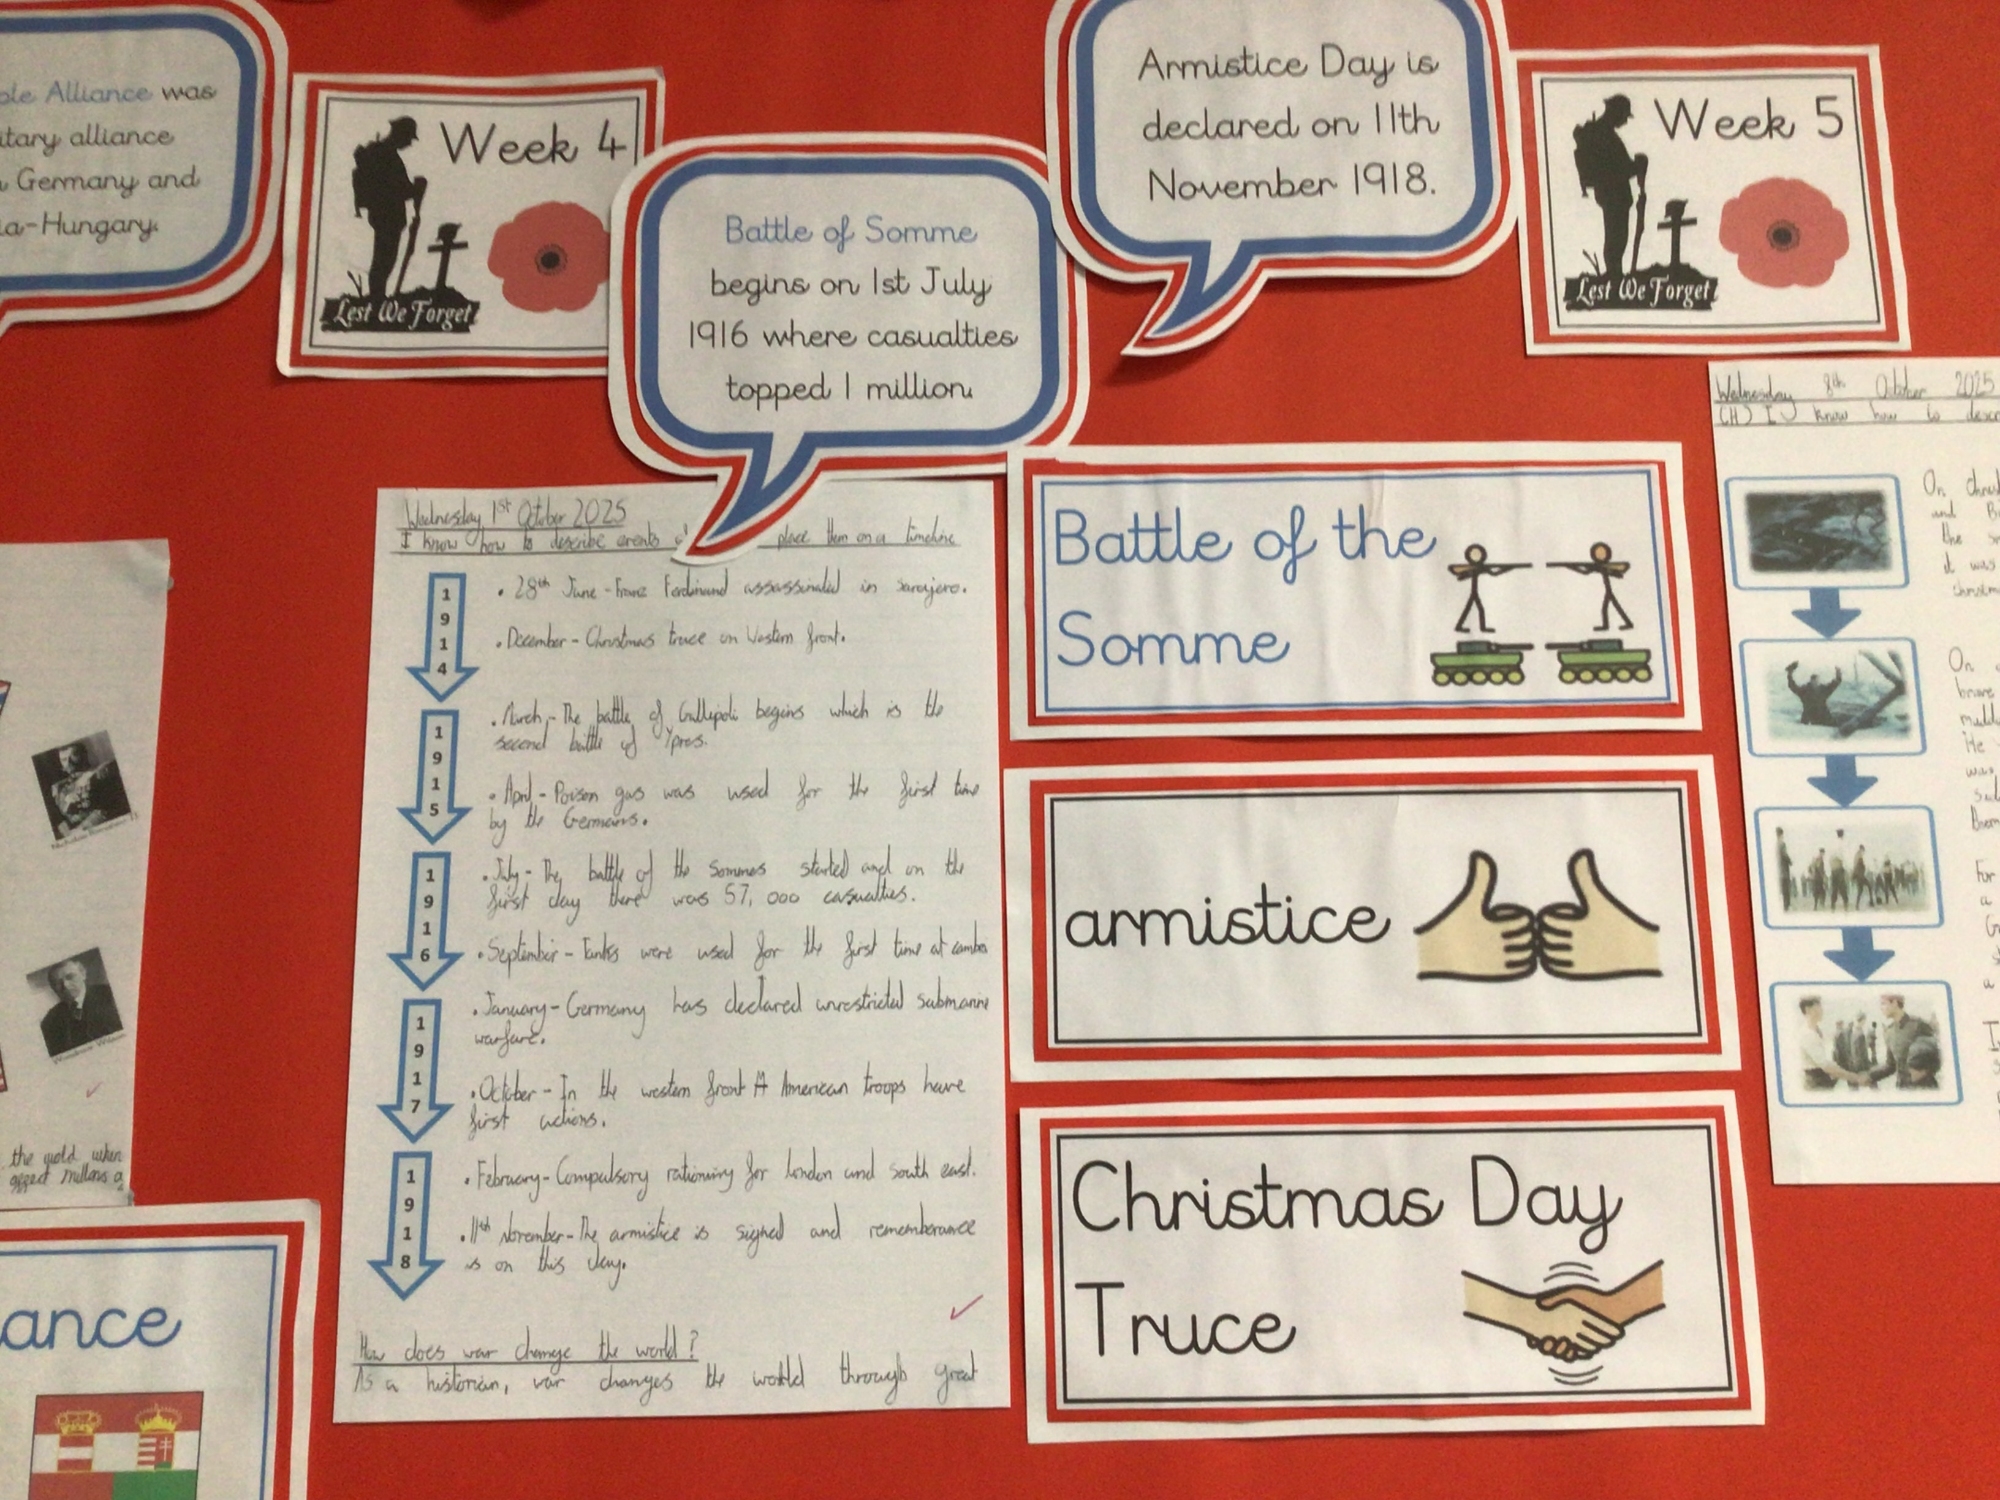 ple Alliance was
itary alliance
n Germany and
ia-Hungary.
Week 4
Lest We Forget
Battle of Somme
begins on 1st July
1916 where casualties
topped 1 million.
Armistice Day is
declared on 11th
November 1918.
Week 5
Lest We Forget
Wednesday 1st October 2025
I know how to describe events place them on a timeline
1914
• 28th June - Franz Ferdinand assassinated in sarajero.
• December - Christmas truce on Western front.
1915
• March - The battle of Gallipoli begins which is the
second battle of Ypres.
• April - Poison gas was used for the first time
by the Germans.
1916
• July - The battle of the Sommes started and on the
first day there was 57,000 casualties.
• September - Tanks were used for the first time at cambra
1917
• January - Germany has declared unrestricted submarine
warfare.
• October - In the western front A American troops have
first actions.
1918
• February - Compulsory rationing for london and south east.
• 11th november - The armistice is signed and rememberance
is on this day.
How does war change the world?
As a historian, war changes the world through great
Battle of the
Somme
armistice
Christmas Day
Truce
Wednesday 8th October 2025
(H) I know how to descr
On christ
and B
the
it was
christm
On
brave
mudd
He
was
For
a
a
Woodrow Wilson
the world when
affect millions a
ance